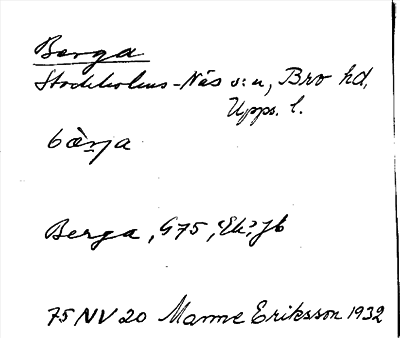 Berga
Stockholms-Näs s:n, Bro hd,
Upps. l.
bæ̀rja
Berga, G75, Ek, Jb
75 NV 20 Manne Eriksson 1932